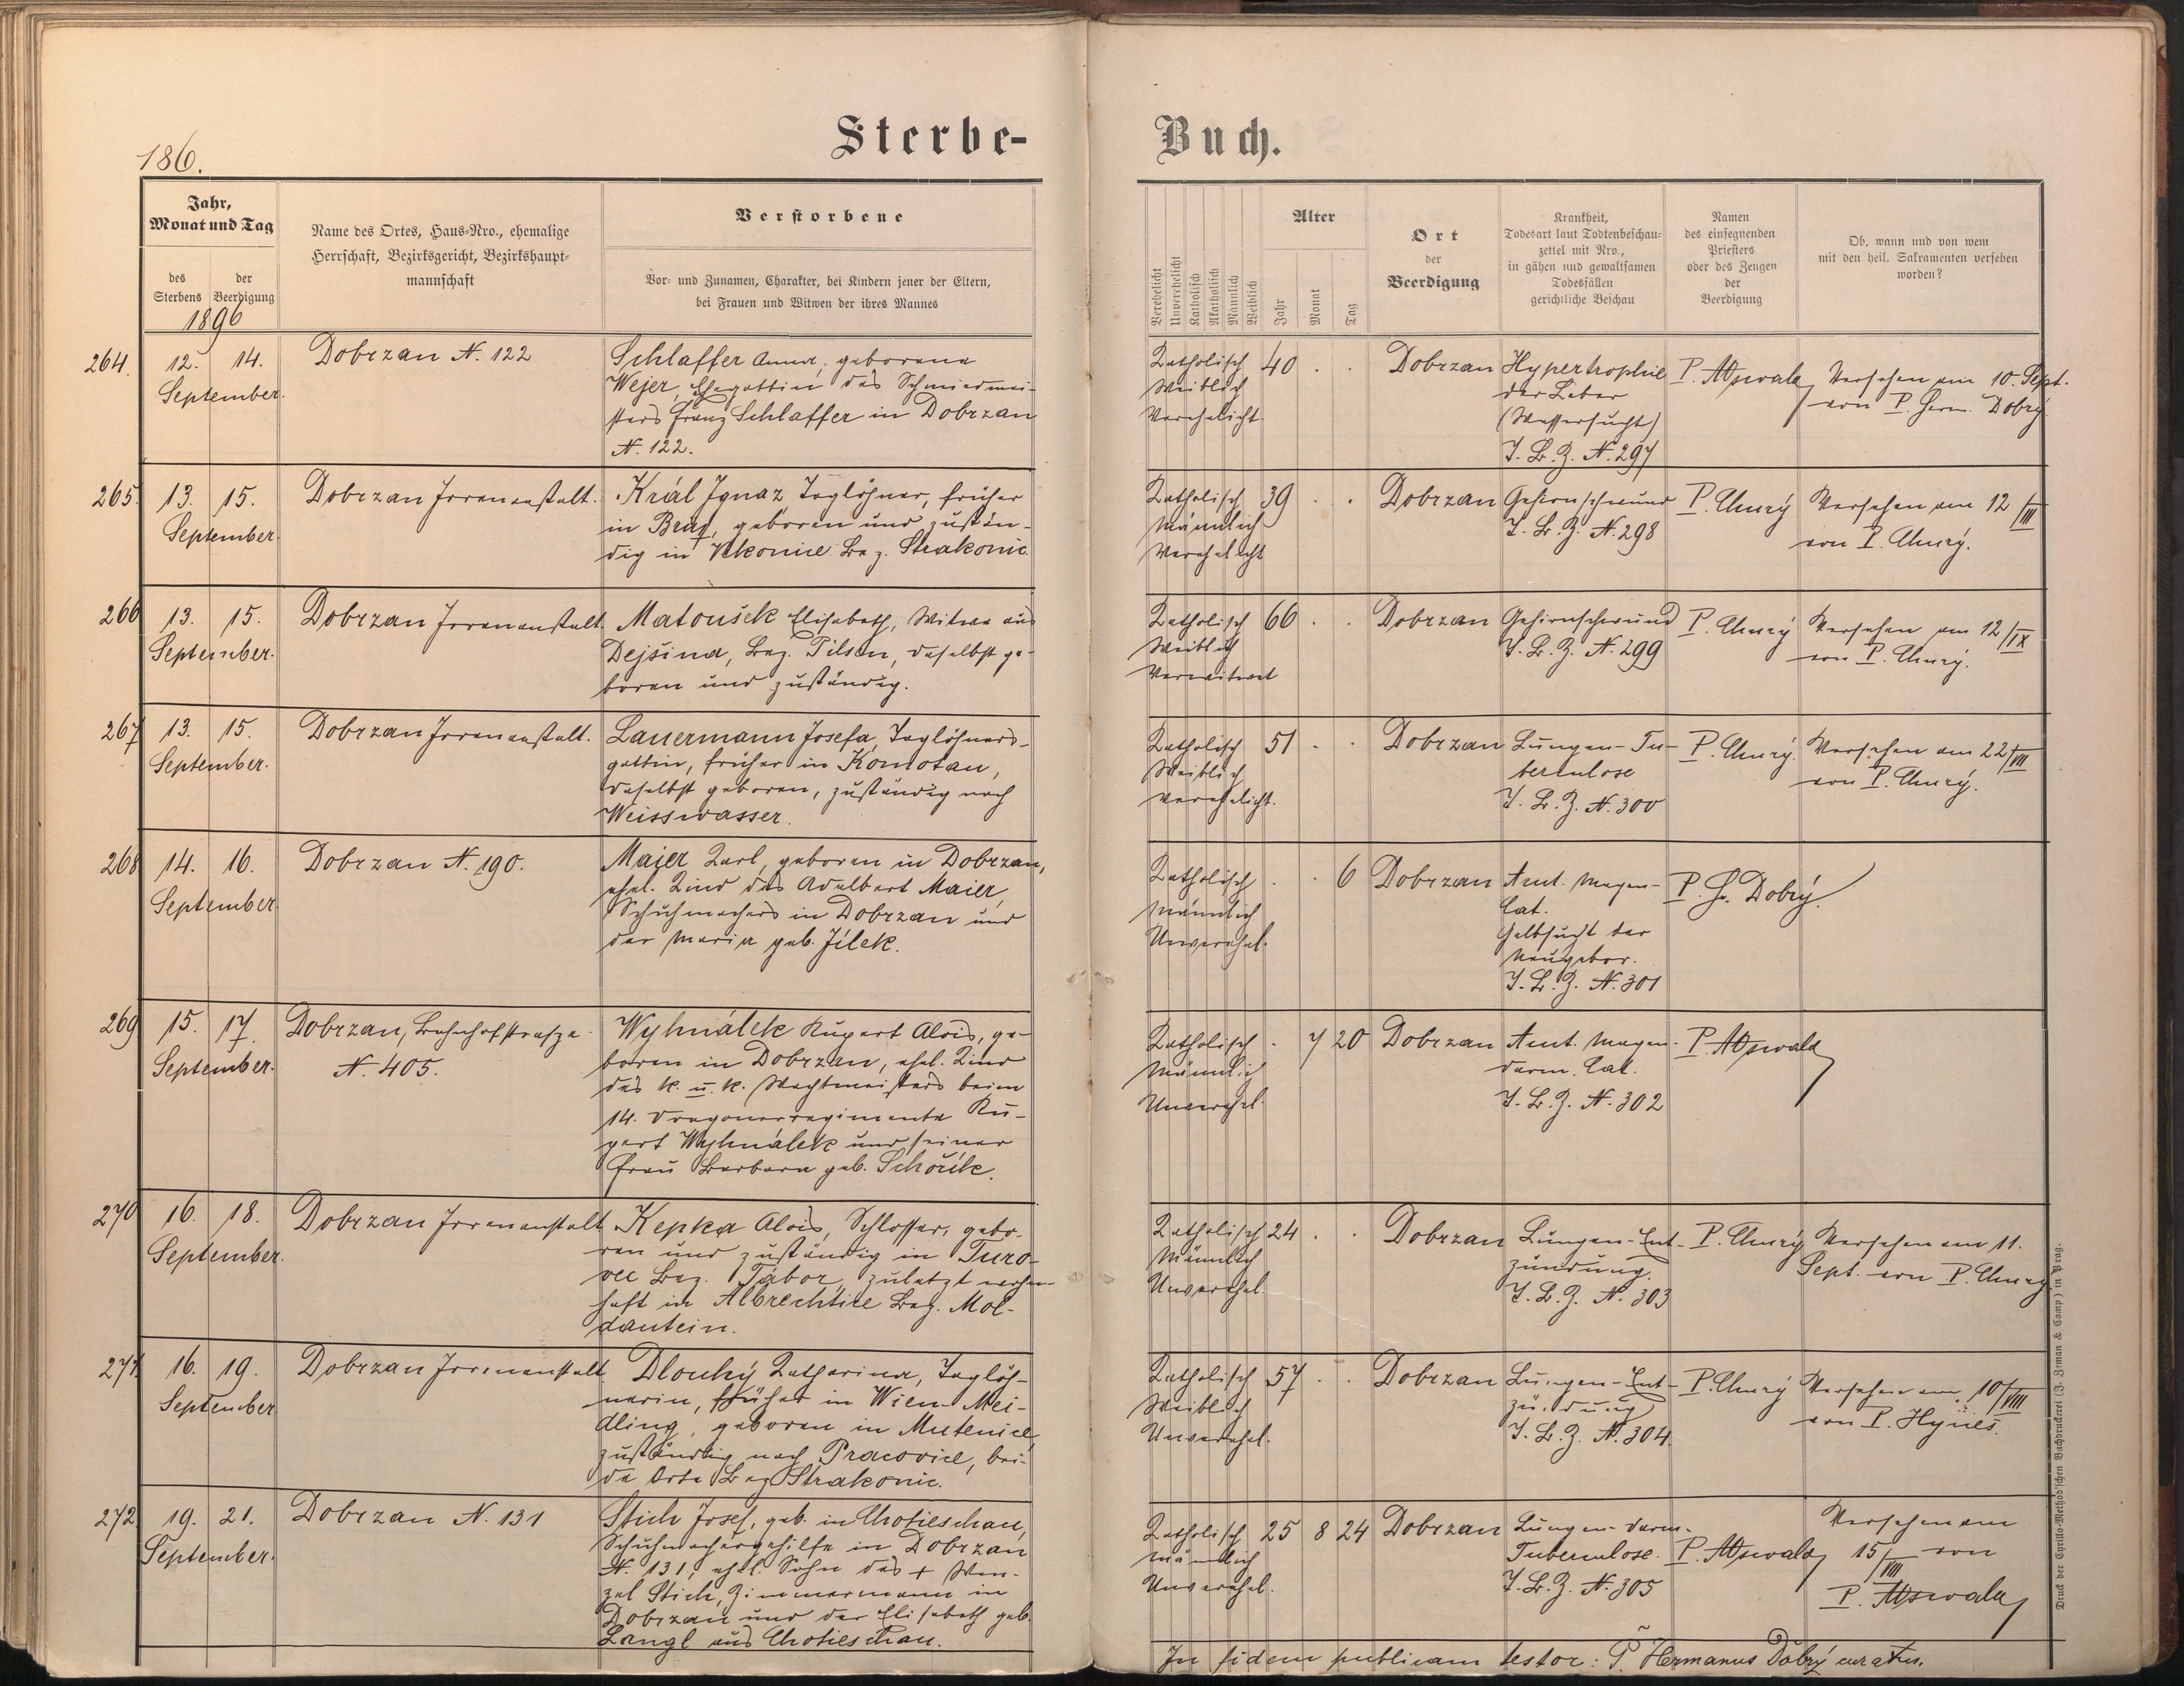 186.
Sterbe-
Buch.
Jahr,
Monat und Tag
des Sterbens
der Beerdigung
1896
Name des Ortes, Haus-Nro., ehemalige
Herrschaft, Bezirksgericht, Bezirkshaupt-
mannschaft
Verstorbene
Vor- und Zunamen, Charakter, bei Kindern jener der Eltern,
bei Frauen und Witwen der ihres Mannes
Verehelicht
Unverehelicht
Katholisch
Akatholisch
Männlich
Weiblich
Alter
Jahr
Monat
Tag
Ort
der
Beerdigung
Krankheit,
Todesart laut Todtenbeschau-
zettel mit Nro.,
in gähen und gewaltsamen
Todesfällen
gerichtliche Beschau
Namen
des einsegnenden
Priesters
oder des Zeugen
der
Beerdigung
Ob, wann und von wem
mit den heil. Sakramenten versehen
worden?
264.
12. 14.
September.
Dobrzan N. 122
Schlaffer Anna, geborene
Wejer, Ehegattin des Schmiedmei-
sters Franz Schlaffer in Dobrzan
N. 122.
Katholisch
Weiblich
Verehelicht
40 . .
Dobrzan
Hypertrophie
der Leber
(Wassersucht)
T. B. Z. N. 297
Versehen am 10. Sept.
von P. Herm. Dobrý
265.
13. 15.
September.
Dobrzan Irrenanstalt.
Král Ignaz Taglöhner, früher
in geboren und zustän-
dig in Bez. Strakonic
Katholisch
Männlich
Verehelicht
39 . .
Dobrzan
Gehirnschwund
T. B. Z. N. 298
P. Chmý
Versehen am 12/VIII
von P.
266
13. 15.
September.
Dobrzan Irrenanstalt
Matoušek Elisabeth, Witwe aus
Dejšina, Bez. Pilsen, daselbst ge-
boren und zuständig.
Katholisch
Weiblich
Verwitwet
66 . .
Dobrzan
Gehirnschwund
T. B. Z. N. 299
Versehen am 12/IX
von P.
267
13. 15.
September.
Dobrzan Irrenanstalt.
Lauermann Josefa, Taglöhners-
gattin, früher in Komotau,
daselbst geboren, zuständig nach
Weisswasser.
Katholisch
Weiblich
verehelicht.
51 . .
Dobrzan
Lungen-Tu-
berculose
T. B. Z. N. 300
Versehen am 22/VIII
von P.
268
14. 16.
September
Dobrzan N. 190.
Majer Karl, geboren in Dobrzan,
ehel. Kind des Adalbert Maier,
Schuhmachers in Dobrzan und
der Maria geb. Jílek.
Katholisch
Männlich
Unverehel.
. . 6
Dobrzan
Acut. Magen-
Cat.
Gelbsucht der
Neugebor.
T. B. Z. N. 301
P. H. Dobrý.
269
15. 17.
September.
Dobrzan, Bahnhofstrasze
N. 405.
Wyhnálek Rupert Alois, ge-
boren in Dobrzan, ehel. Kind
des k. u. k. Wachtmeisters beim
14. Dragonerregimente Ru-
pert Wyhnálek und seiner
Frau Barbara geb.
Katholisch
Männlich
Unverehel.
. 7 20
Dobrzan
Acut. Magen-
darm. Cat.
T. B. Z. N. 302
270
16. 18.
September.
Dobrzan Irrenanstalt
Kepka Alois, Schlosser, gebo-
ren und zuständig in Turo-
vec Bez. Tábor, zuletzt wohn-
haft in Albrechtice Bez. Mol-
dautein.
Katholisch
Männlich
Unverehel.
24 . .
Dobrzan
Lungen-Ent-
zündung.
T. B. Z. N. 303
Versehen am 11.
Sept. von P.
271.
16. 19.
September
Dobrzan Irrenanstalt.
Dlouhý Katharina, Taglöh-
nerin, früher in Wien-Mei-
dling, geboren in Mutenice,
zuständig nach Pracovice, bei-
de Orte Bez Strakonic.
Katholisch
Weiblich
Unverehel.
57 . .
Dobrzan
Lungen-Ent-
zündung
T. B. Z. N. 304.
Versehen am 10/VIII
von P. Hyneš.
272.
19. 21.
September.
Dobrzan N. 131
Stich Josef, geb. in Chotieschau,
Schuhmachergehilfe in Dobrzan
N. 131, ehel. Sohn des + Wen-
zel Stich, Zimmermann in
Dobrzan und der Elisabeth geb.
Langl aus Chotieschau.
Katholisch
Männlich
Unverehel.
25 8 24
Dobrzan
Lungen-Darm-
Tuberculose.
T. B. Z. N. 305
Versehen am
15/VIII von
In fidem publicam testor: P. Hermanus Dobrý curatus.
Druck der Cyrillo-Method'schen Buchdruckerei (J. Zeman & Comp) in Prag.